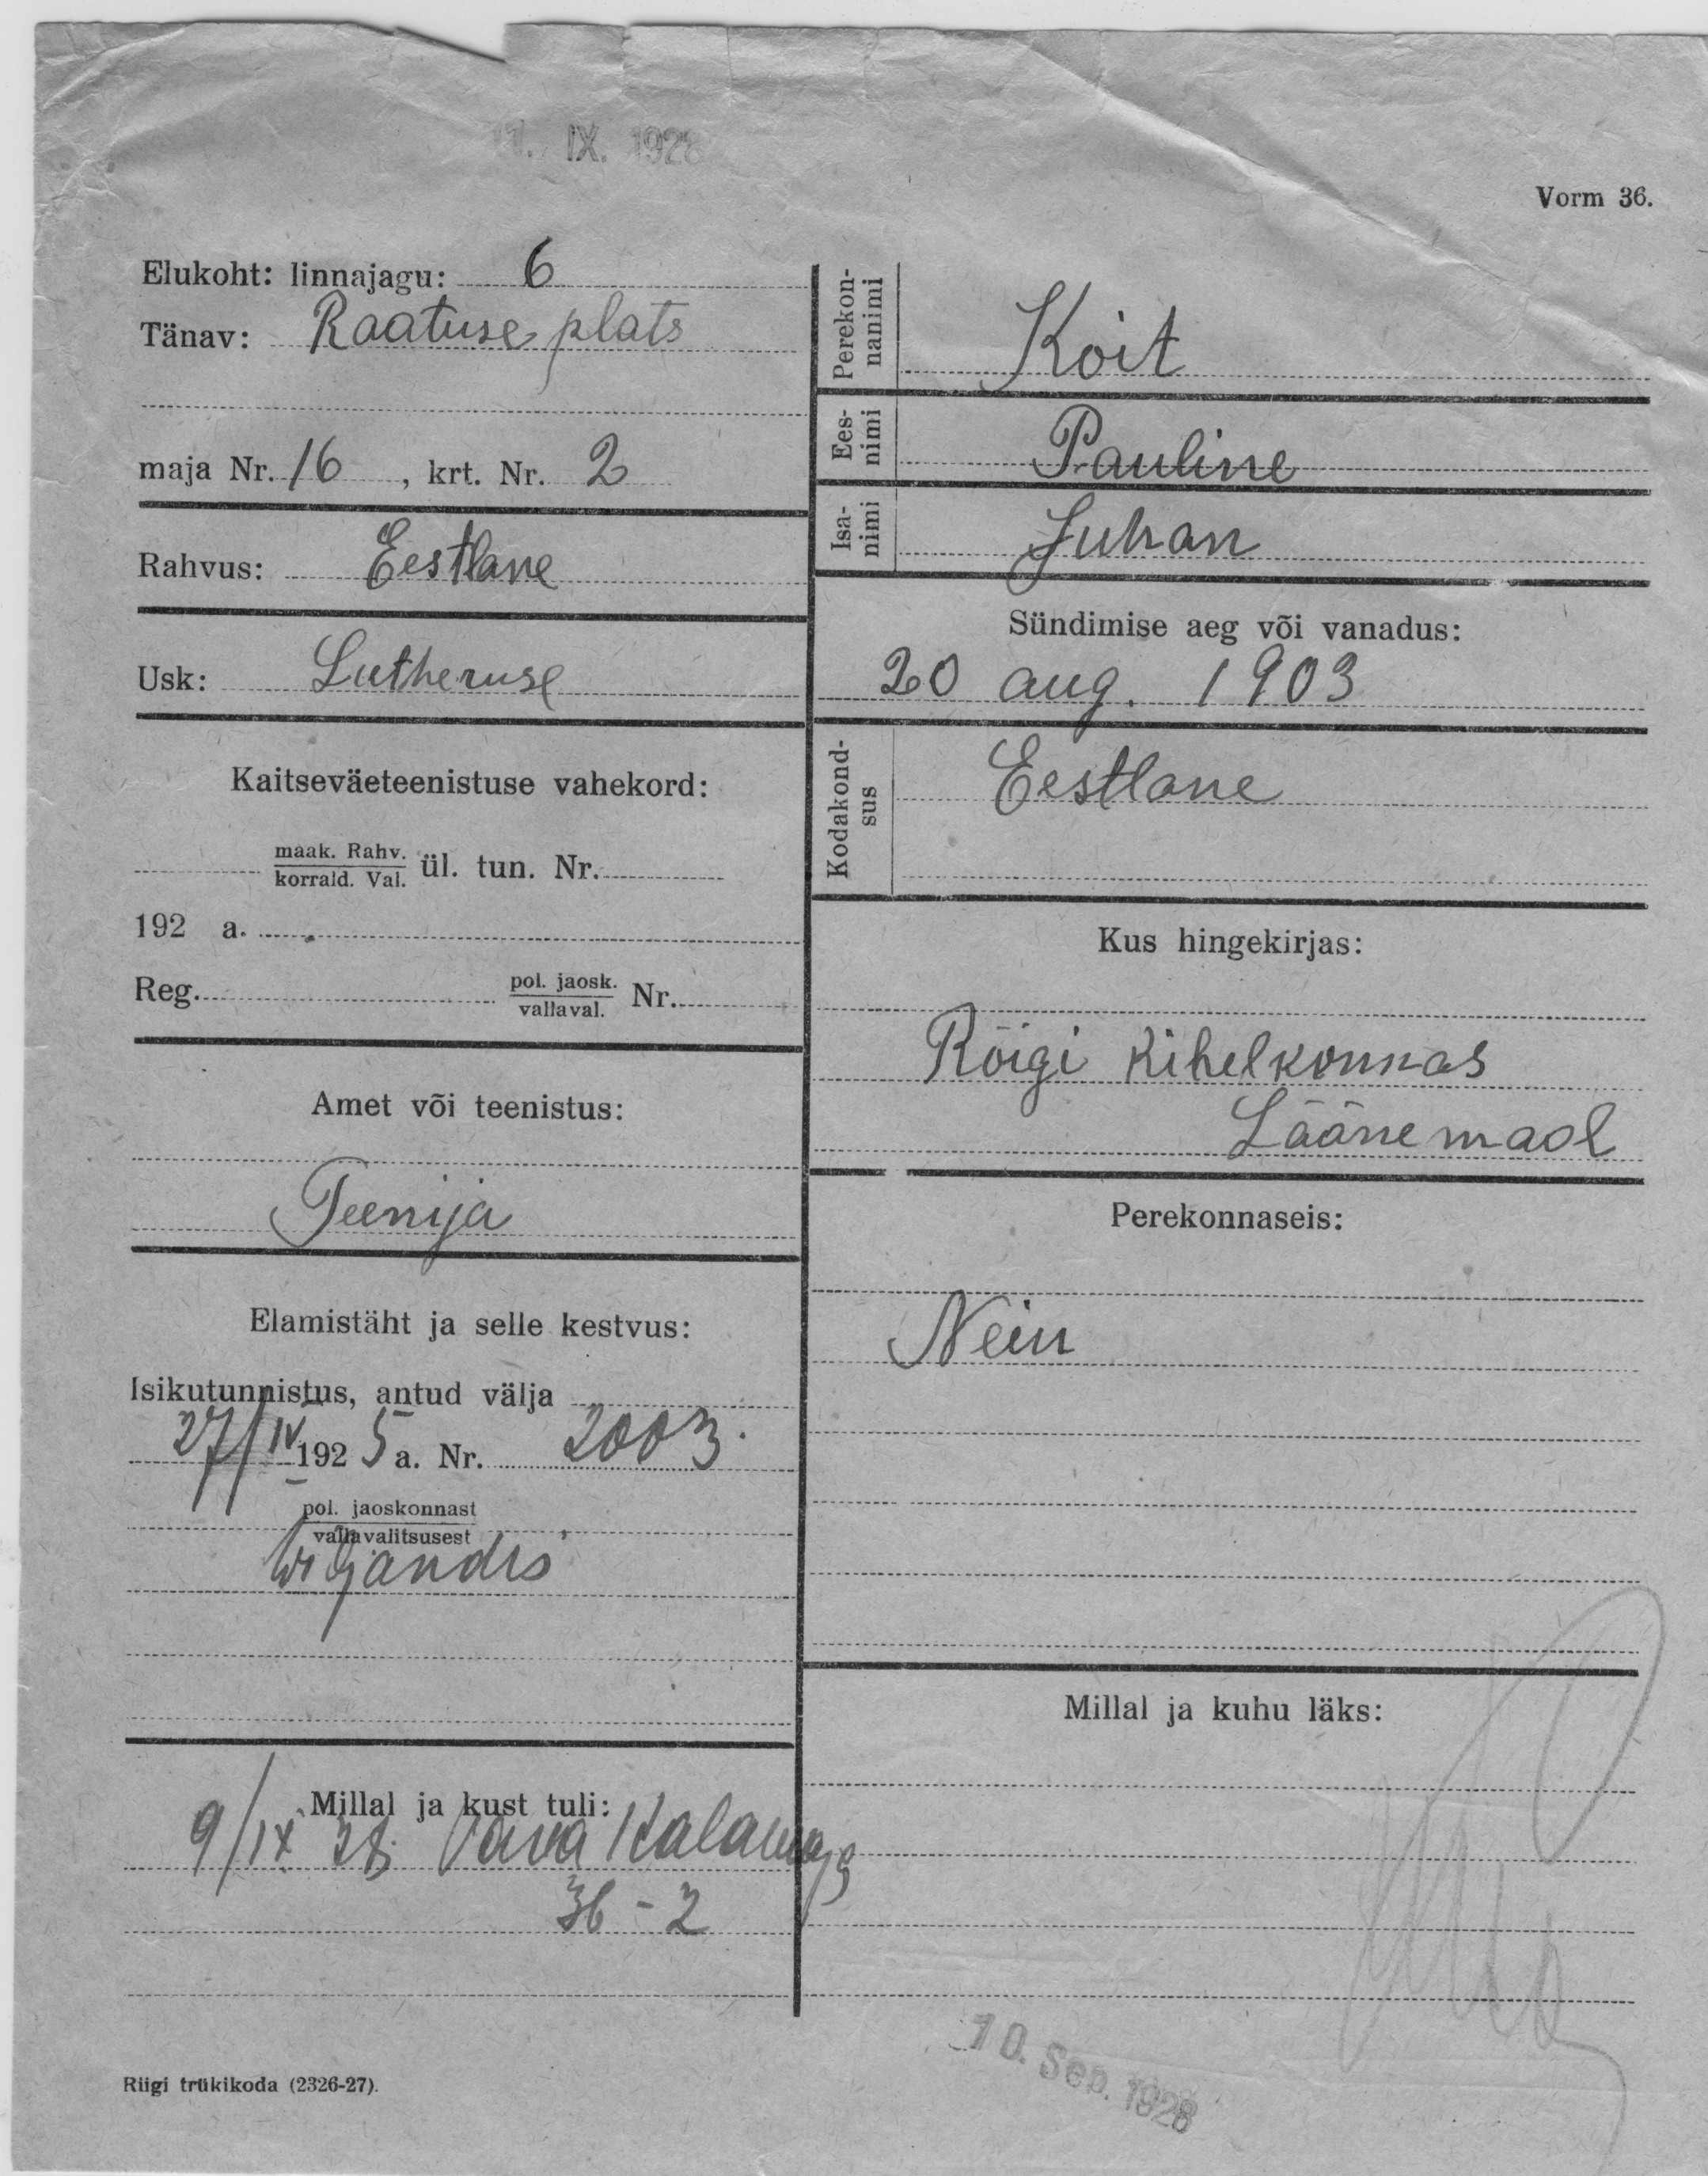 1. IX. 1928
Vorm 36.
Elukoht: linnajagu: 6
Tänav: Raatuse plats
maja Nr. 16, krt. Nr. 2
Rahvus: Eestlane
Usk: Lutheruse
Kaitseväeteenistuse vahekord:
maak. Rahv.
korrald. Val. ül. tun. Nr.
192 a.
Reg. pol. jaosk.
vallaval. Nr.
Amet või teenistus:
Teenija
Elamistäht ja selle kestvus:
Isikutunnistus, antud välja
27/IV 1925 a. Nr. 2003.
pol. jaoskonnast
vallavalitsusest
Wiljandis
Millal ja kust tuli:
9/IX 28. Vana Kalamaja
36-2
Riigi trükikoda (2326-27).
Perekon-
nanimi
Koit
Ees-
nimi
Pauline
Isa-
nimi
Juhan
Sündimise aeg või vanadus:
20 aug. 1903
Kodakond-
sus
Eestlane
Kus hingekirjas:
Röigi kihelkonnas
Läänemaal
Perekonnaseis:
Nein
Millal ja kuhu läks:
10. Sep. 1928